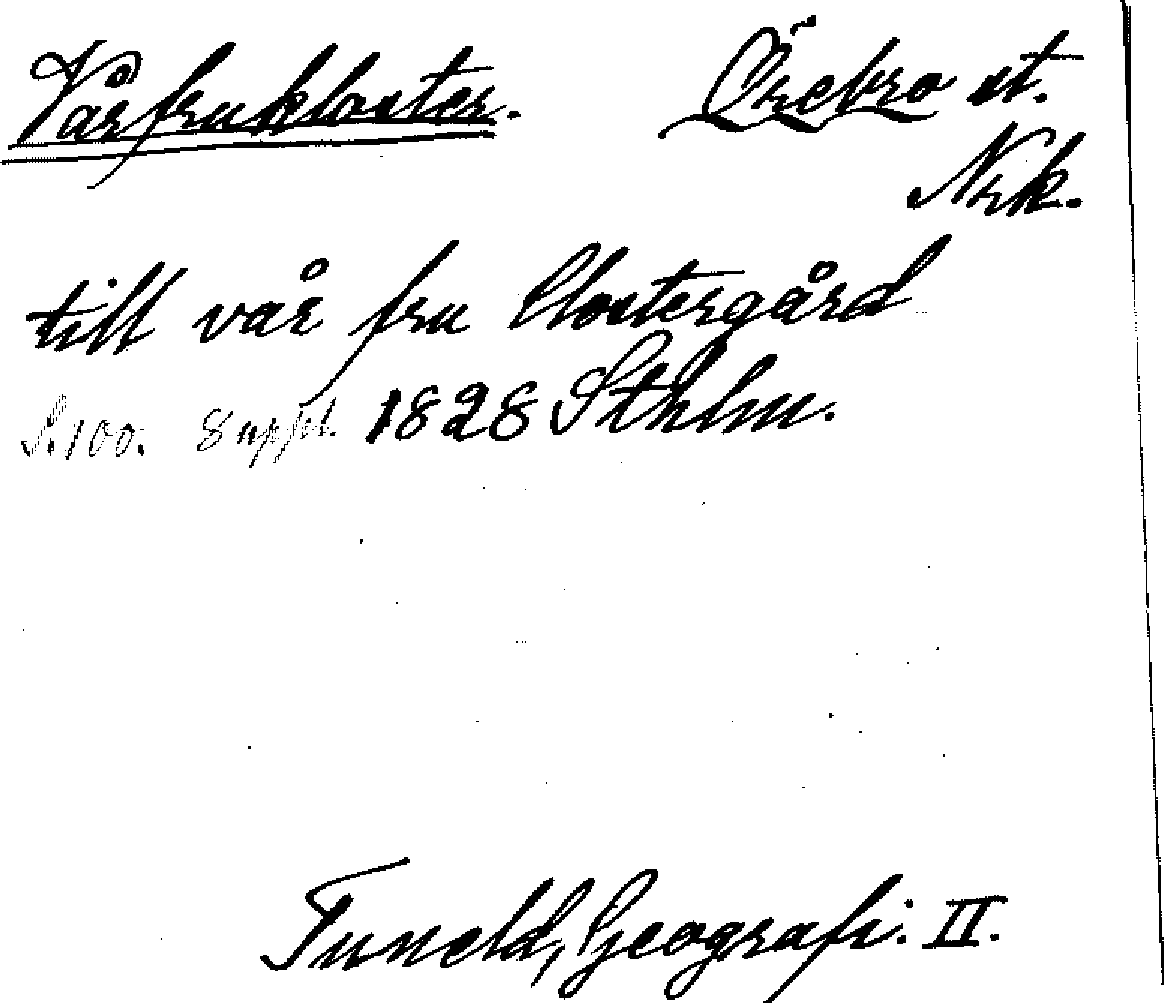 Vårfrukloster. Örebro st.
Nrk.
till vår fru Clostergård
S. 100. 8 uppl. 1828 Sthlm.
Tuneld, Geografi. II.